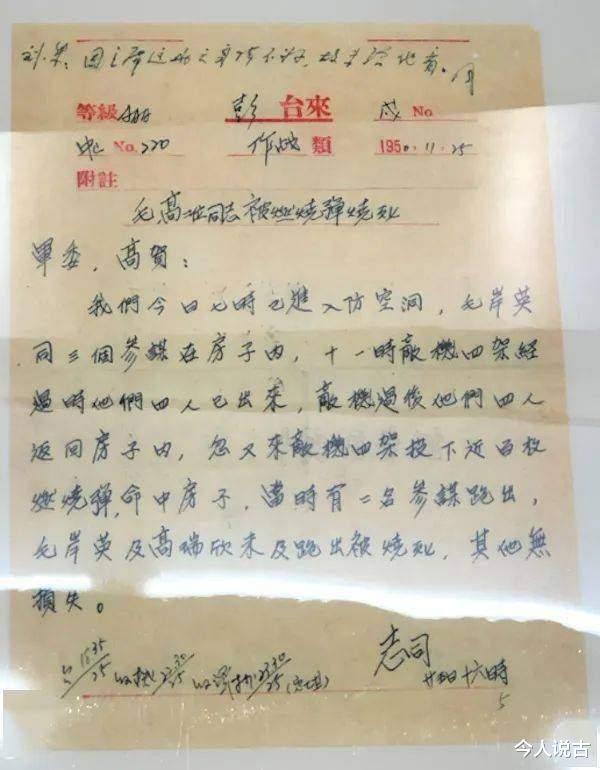 刘、朱：因主席这两天身体不好，故未给他看。周
等級 彭 台來 No.
No.220 作战 類 1950.11.25
附註
毛高二同志被燃燒彈燒死
軍委，高賀：
我們今日七時已進入防空洞，毛岸英
同三個參謀在房子內，十一時敵機四架經
過時他們四人已出來，敵機過後他們四人
返回房子內，忽又來敵機四架投下近百枚
燃燒彈，命中房子，當時有二名參謀跑出，
毛岸英及高瑞欣未及跑出被燒死，其他無
損失。
志司
十六時
今人说古